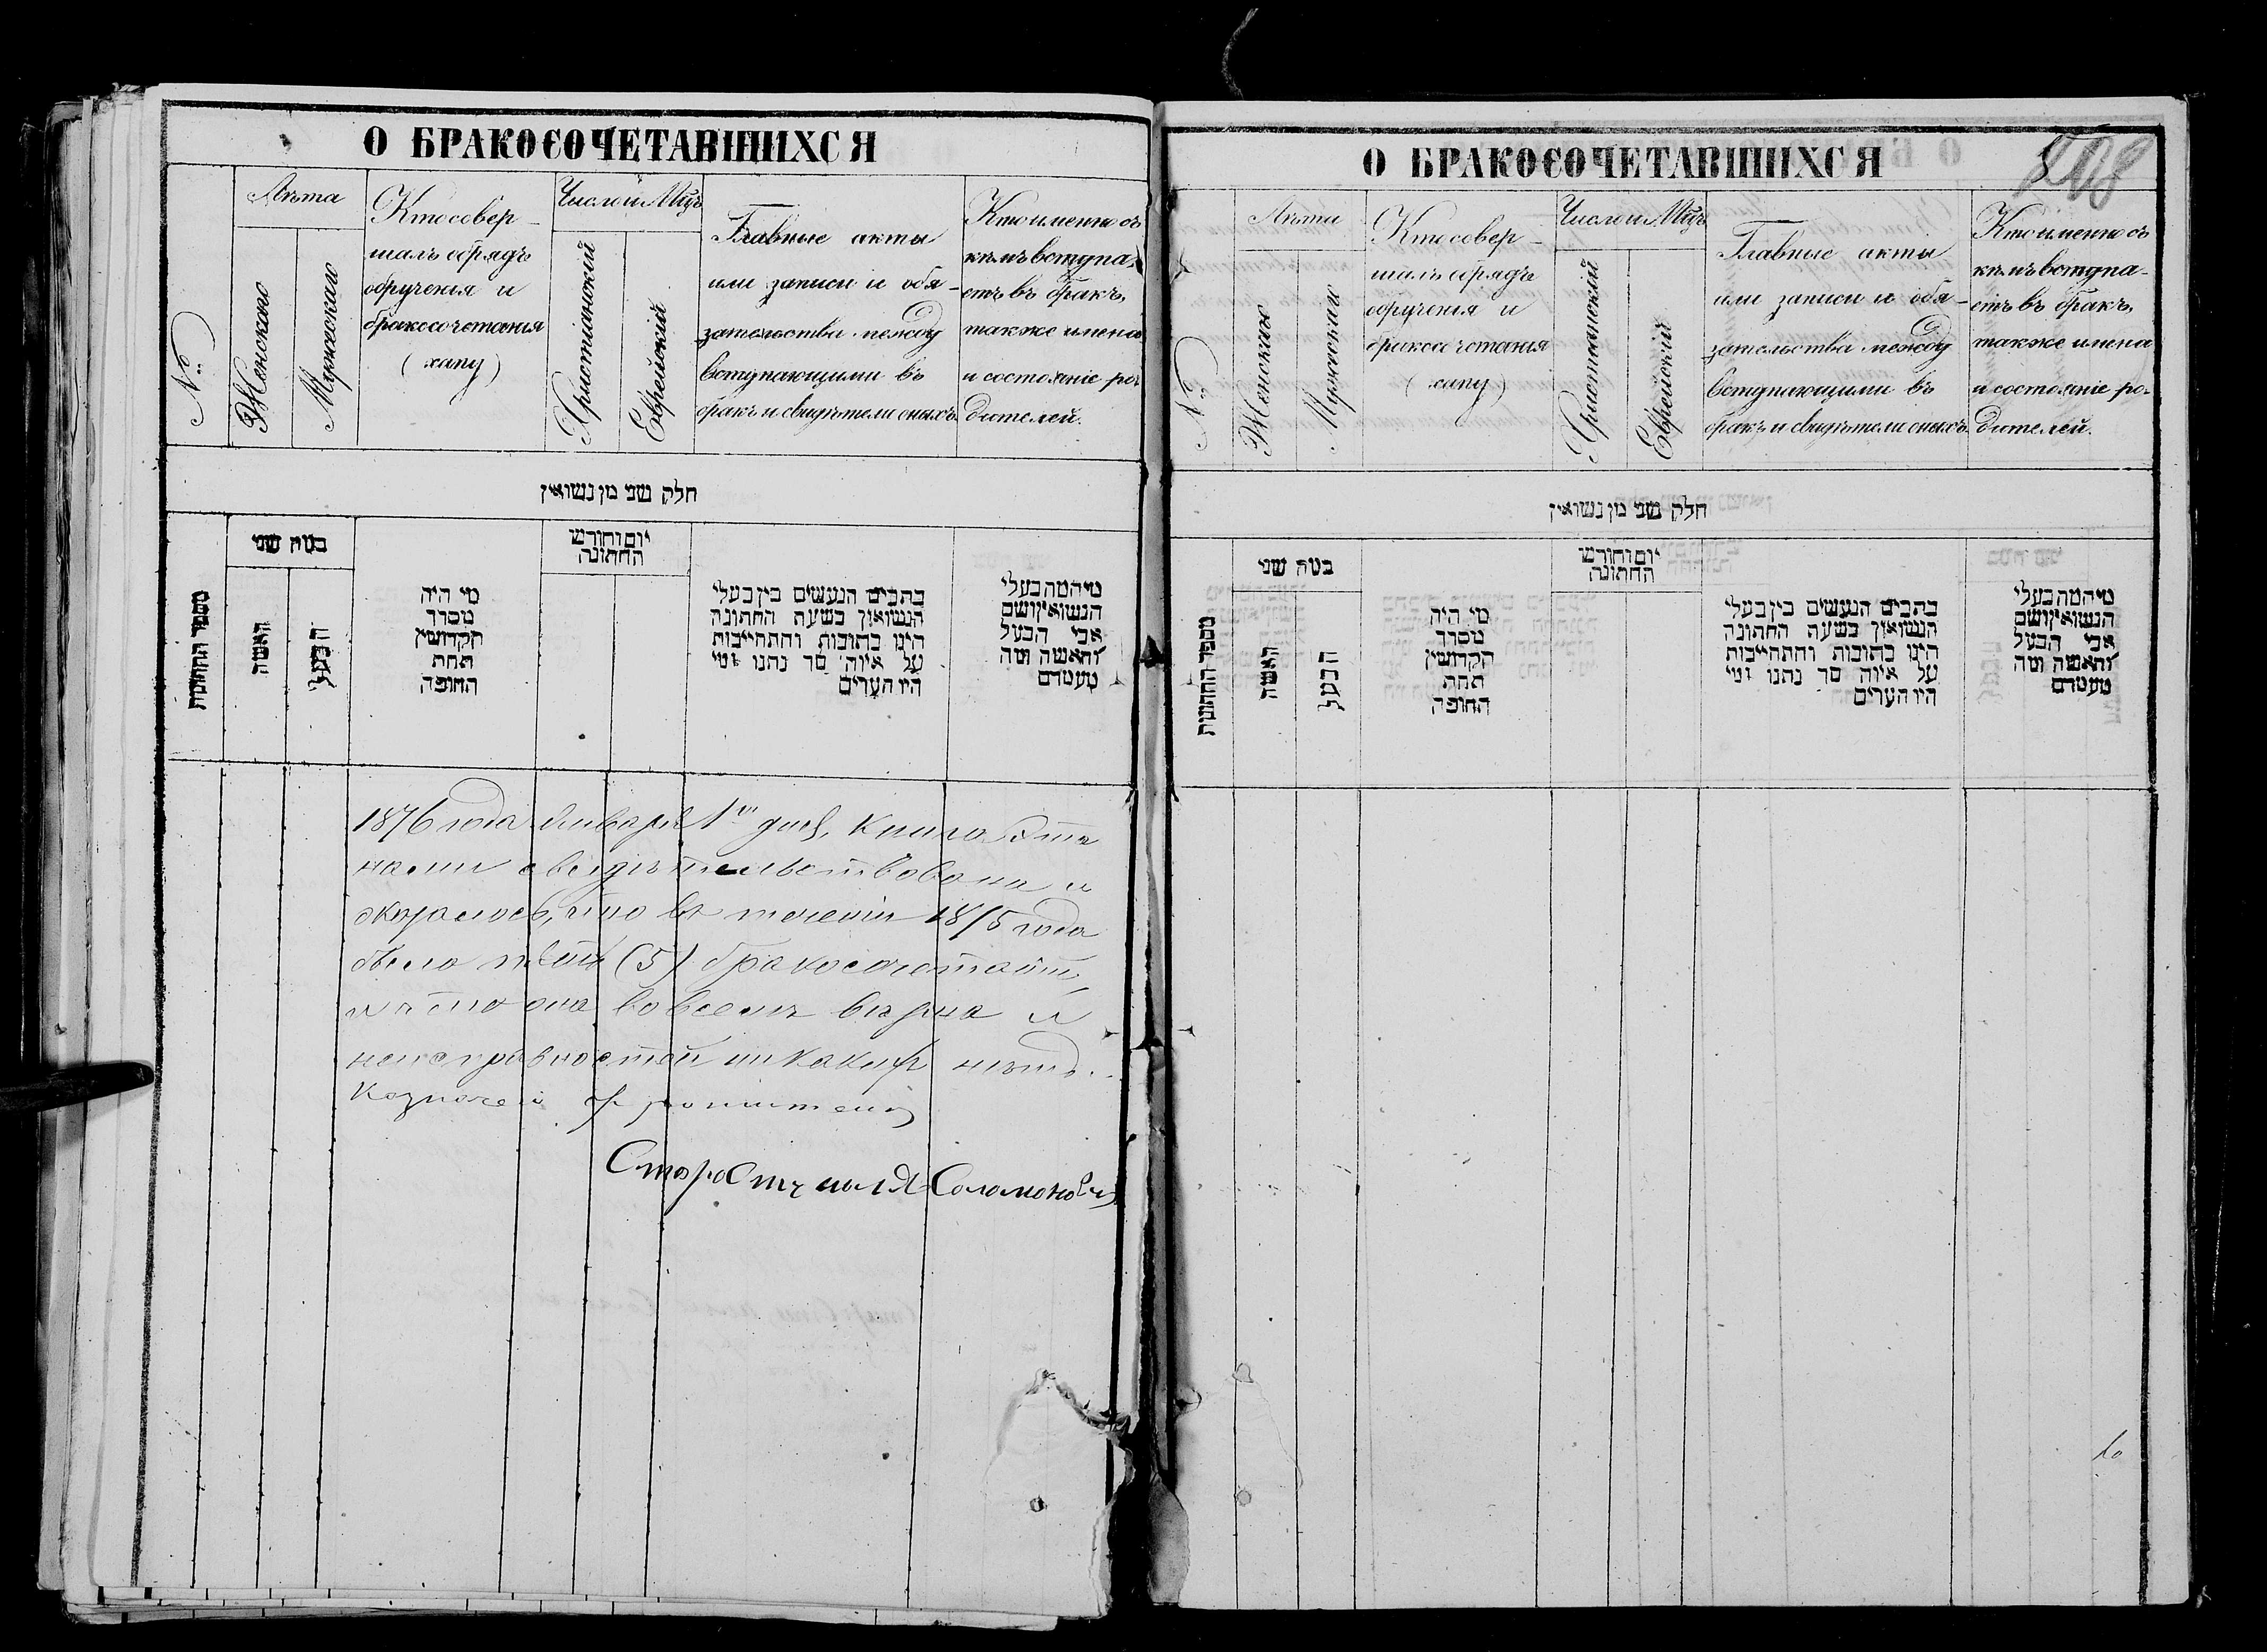 О БРАКОСОЧЕТАВШИХСЯ
№
Лѣта
Женскаго
Мужескаго
Кто совер-
шалъ обрядъ
обрученія и
бракосочетанія
(хапу)
Число и Мцъ
Христіанскій
Еврейскій
Главные акты
или записи и обя-
зательства между
вступающими въ
бракъ и свидѣтели оныхъ.
Кто именно съ
кѣмъ вступа-
етъ въ бракъ,
также имена
и состояніе ро-
дителей.
חלק שני מן נשואין
מספר החתונות
כמה שני
האשה
הבעל
מי היה
מסדר
הקדושין
תחת
החופה
יום וחודש
החתונה
כתבים הנעשים בין בעלי
הנשואין בשעת החתונה
היינו כתובות והתחייבות
על איזה סך נתנו ומי
היו העדים
מי המה בעלי
הנשואין ושם
אבי הבעל
והאשה ומה
מעמדם
1876 года Января 1го дня, книга эта
нами свидѣтельствована и
оказалось, что въ теченіи 1875 года
было пять (5) бракосочетаній,
и что она во всемъ вѣрна и
неисправностей никакихъ нѣтъ.
Казначей
Староста Соломоновъ
О БРАКОСОЧЕТАВШИХСЯ
208
№
Лѣта
Женскаго
Мужескаго
Кто совер-
шалъ обрядъ
обрученія и
бракосочетанія
(хапу)
Число и Мцъ
Христіанскій
Еврейскій
Главные акты
или записи и обя-
зательства между
вступающими въ
бракъ и свидѣтели оныхъ.
Кто именно съ
кѣмъ вступа-
етъ въ бракъ,
также имена
и состояніе ро-
дителей.
חלק שני מן נשואין
מספר החתונות
כמה שני
האשה
הבעל
מי היה
מסדר
הקדושין
תחת
החופה
יום וחודש
החתונה
כתבים הנעשים בין בעלי
הנשואין בשעה החתונה
היינו כתובות והתחייבות
על איזה סך נתנו ומי
היו העדים
מי המה בעלי
הנשואין ושם
אבי הבעל
והאשה ומה
מעמדם